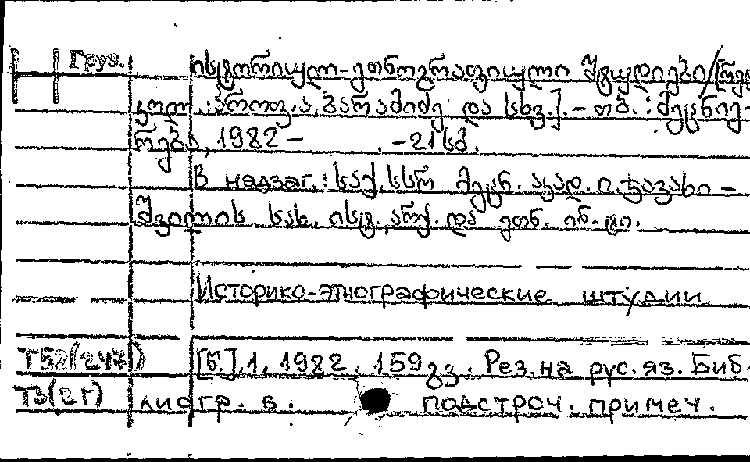 Груз. ისტორიულ-ეთნოგრაფიული შტუდიები/[რედ.
კოლ.: პროფ. ა. ბარამიძე და სხვ.]. - თბ. : მეცნიე-
რება, 1982 - - 21 სმ.
В надзаг.: საქ. სსრ მეცნ. აკად. ი. ჯავახი-
შვილის სახ. ისტ., არქ. და ეთნ. ინ-ტი.
Историко-этнографические штудии
Т52(2Ч7) [ნ.], 1, 1982. 159 გვ. Рез. на рус. яз. Биб-
Т3(2Г) лиогр. в. подстроч. примеч.